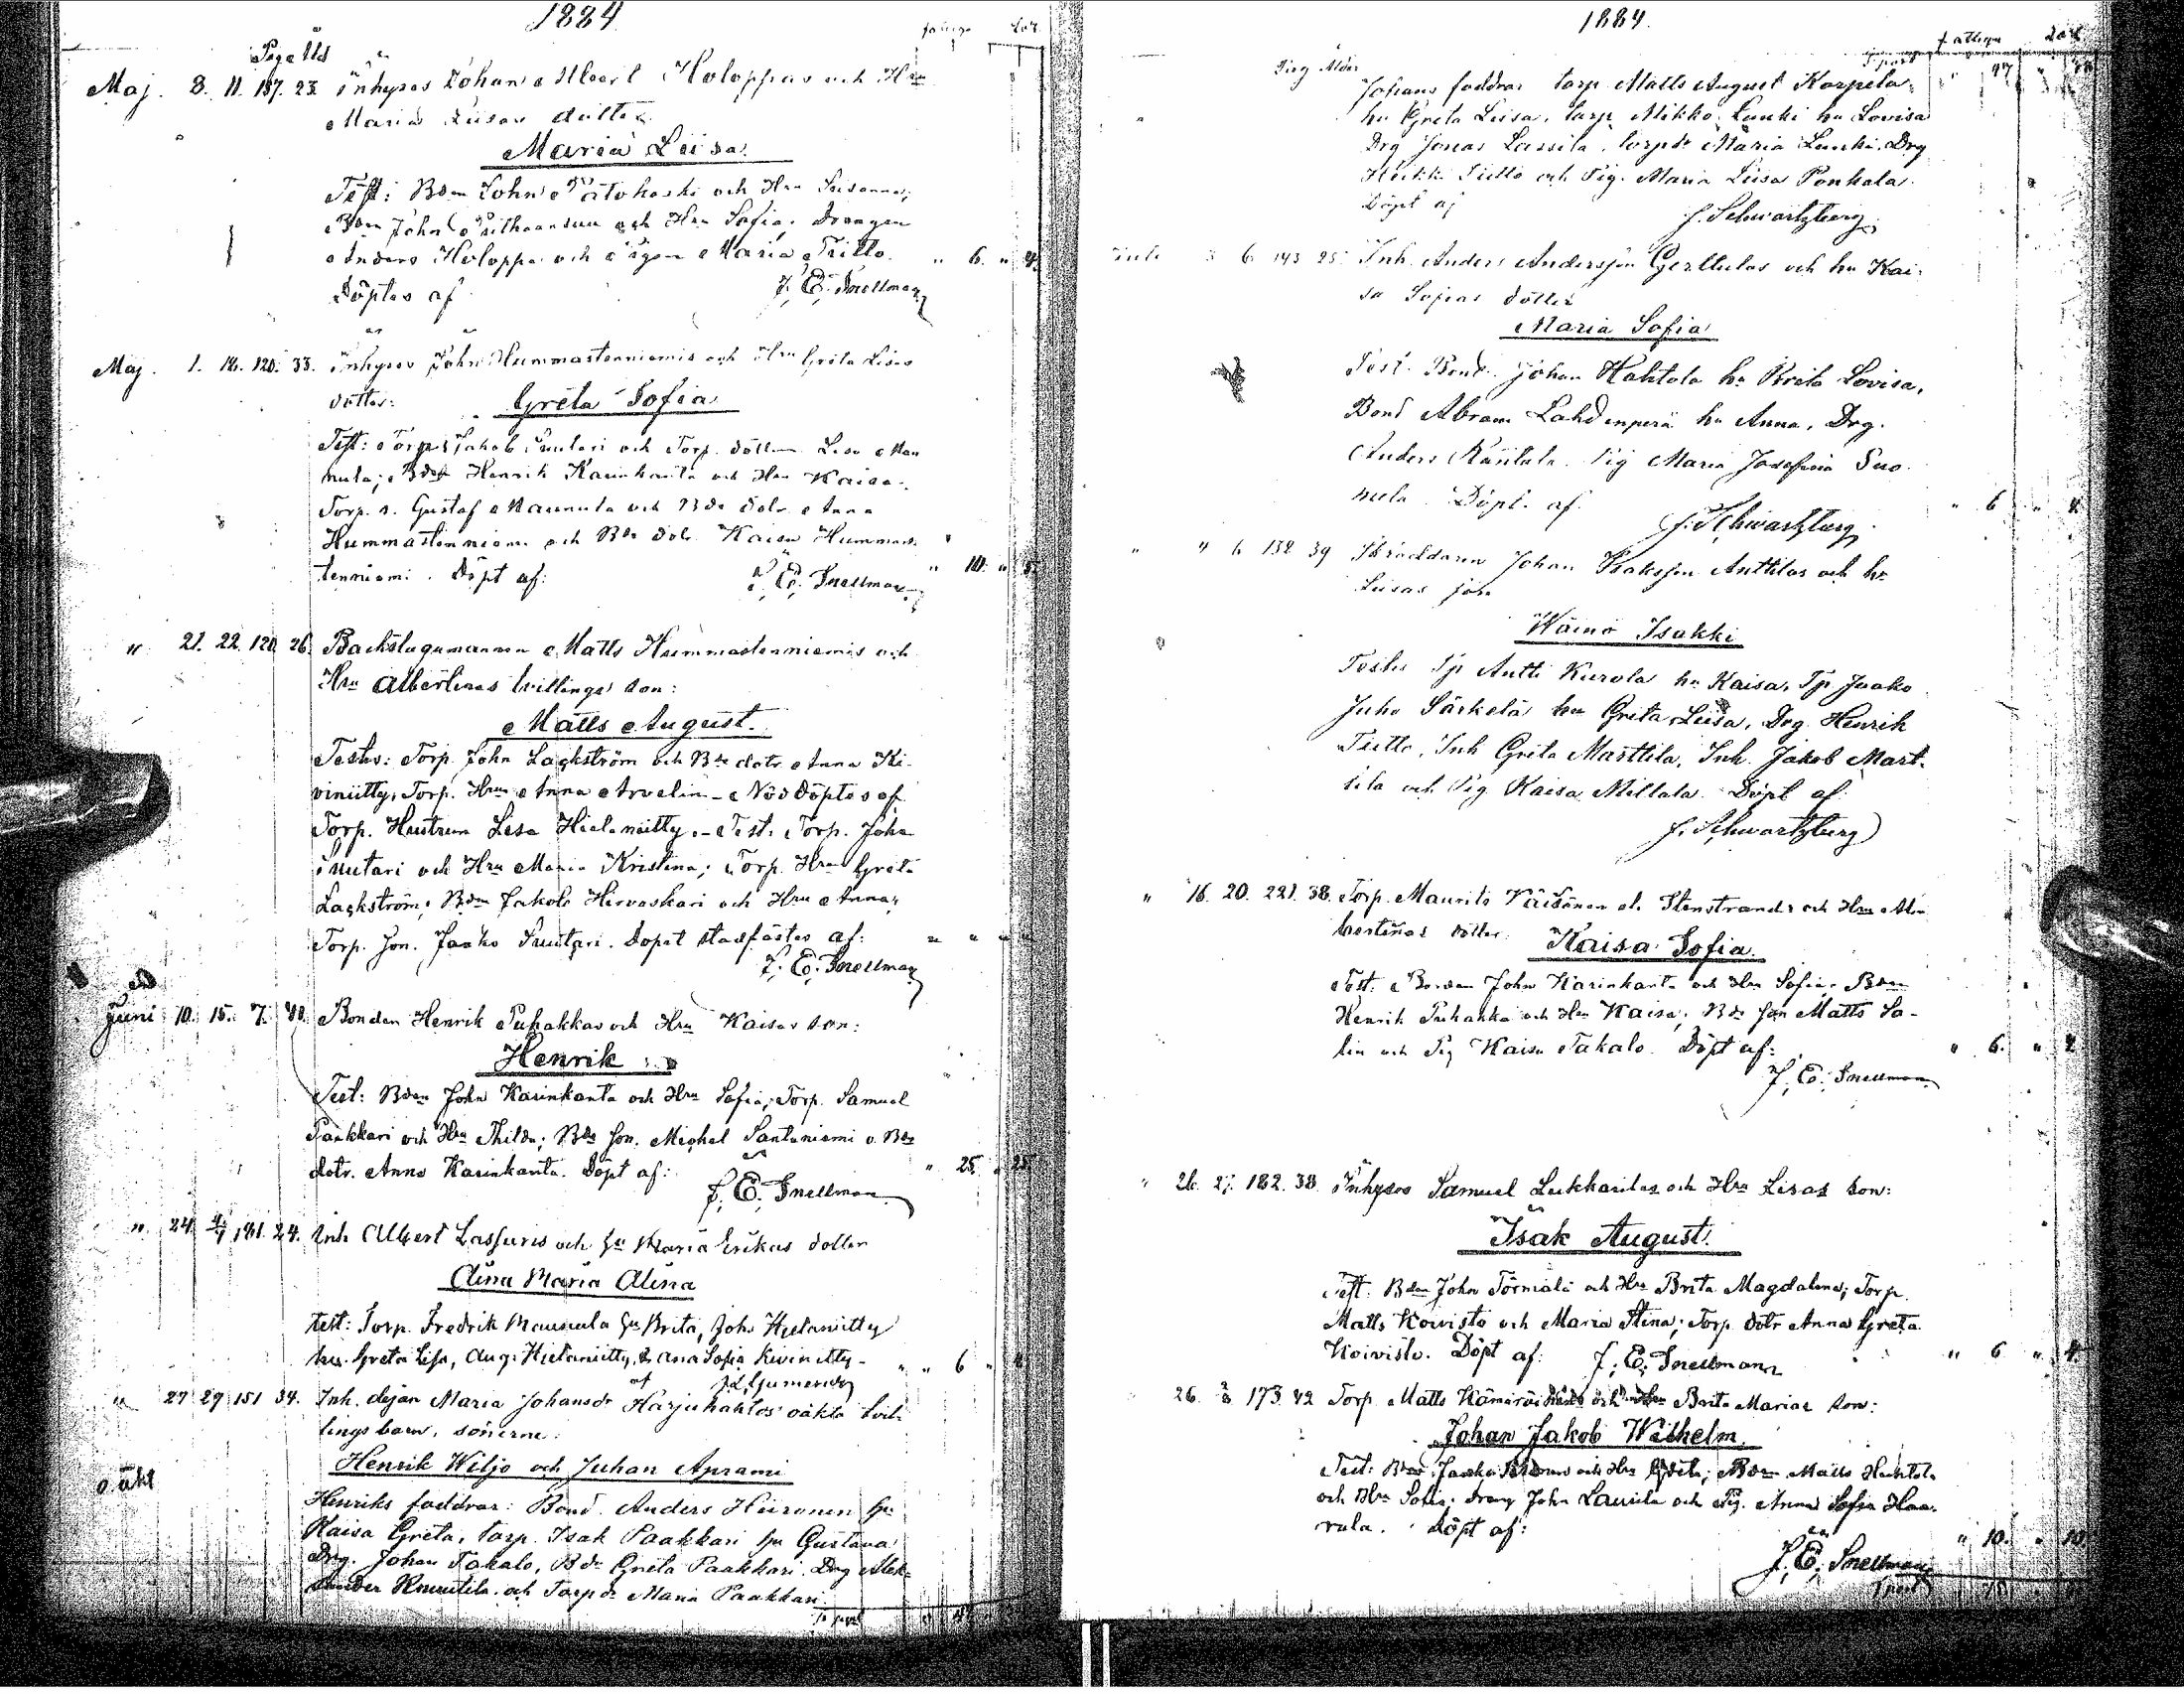 1884
fattiga
Pag Ald
Maj. 8. 11. 187. 23. Inhyses Johan Albert Holoppas och Hru
Maria Liisas dotter
Maria Liisa.
Test: Bden John Pätökoski och Hru Susanna;
Bden John och Hru Sofia; Drengen
Anders Holoppa och Pigan Maria Tritto. " 6. " 4.
Döptes af J. E. Snellman
Maj. 1. 18. 120. 33. Inhyses John Hummastenniemis och Hru Greta Lisas
dotter: Greta Sofia
Test: Torp. Jakob Suutari och Torp. dottren Lisa Man
nula; Bden Henrik Karinkanta och Hru Kaisa.
Torp. s. Gustaf Maunula och Bde dotr Anna
Hummastenniemi och Bde dotr Kaisa Hummas
tenniemi. Döpt af: J. E. Snellman " 10. " 5.
" 21. 22. 120. 26. Backstugumannen Matts Hummastenniemis och
Hru Albertinas tvillings son:
Matts August.
Testes: Torp. John Lackström och Bde dotr Anna Ki-
viniitty, Torp. Hrun Anna Arvelin - Nöddöptes af
Torp. Hustrun Lisa Hietaniitty. - Test: Torp. John
Suutari och Hru Maria Kristina; Torp. Hru Greta
Lackström; Bden Jakob Hirvaskari och Hru Anna;
Torp. son. Jaako Suutari. Dopet stadfästes af:
J. E. Snellman
Juni 10. 15. 7. 40. Bonden Henrik Puhakkas och Hru Kaisas son:
Henrik
Test: Bden John Karinkanta och Hru Sofia; Torp. Samuel
Paakkari och Hru Thilda; Bde son. Michel Santaniemi o. Bde
dotr. Anna Karinkanta. Döpt af: " 25. " 25.
J. E. Snellman
" 24. 181. 24. Inh Albert Lassuris och hu Maria Erikas dotter
Aina Maria Alina
Test: Torp. Fredrik Maunula hu Brita, John Hietaniitty
hu. Greta Lisa, Aug. Hietaniitty, Anna Sofia Kiviniitty - " " 6 "
af
" 27 29 151 34. Inh. dejan Maria Johansdr Harjuhahtos oäkta tvil-
lingsbarn, sönerne:
Henrik Wiljo och Juhan Aprami
oäkt
Henriks faddrar: Bond. Anders Hiironen hu
Kaisa Greta, torp. Isak Paakkari hu Gustava
Drg. Johan Takalo, Bdr Greta Paakkari. Drg Alek-
sander Knuutila och Torpdr Maria Paakkari
1884.
fattiga
Pag Alder
Johans faddrar torp Matts August Karpela
hu Greta Liisa, torp. Mikko Lunki hu Lovisa
Drg Jonas Lassila, torpdr Maria Lunki. Drg
Heikki Tiitto och Pig. Maria Liisa Ponkala.
Döpt af
J. Schwartzberg
6. 143 25. Inh. Anders Andersson Gerttulas och hu Kai-
sa Sofias dotter
Maria Sofia
Test. Bond. Johan Hahtola hu Brita Lovisa,
Bond Abram Lahdenperä hu Anna, Drg.
Anders Räntala. Pig Maria Josefina Suo-
nula. Döpt af. " 6. " 4.
J. Schwartzberg
" " 6 132 39 Skräddaren Johan Isaksson Anttilas och hu
Liisas son
Wäino Isakki
Testes Tp Antti Kurola hu Kaisa, Tp Jaako
Juho Särkelä hu Greta Liisa, Drg Henrik
Tiitto, Inh Greta Marttila, Inh. Jakob Mart-
tila och Pig Kaisa Millala. Döpt af
J. Schwartzberg
" 16. 20. 221. 38. Torp. Maurits Väisänen el. Stenstrands och Hru Al-
bertinas dotter: Kaisa Sofia.
Test: Bonden John Karinkanta och Hru Sofia; Bden
Henrik Puhakka och Hru Kaisa; Bde son Matts Sa-
lin och Pig Kaisa Takalo. Döpt af: " 6. "
J. E. Snellman
" 26. 27. 182. 38. Inhyses Samuel Leikkaritas och Hru Lisas son:
Isak August.
Test: Bden John Törmälä och Hru Brita Magdalena; Torp.
Matts Koivisto och Maria Stina; Torp dotr Anna Greta
Koivisto. Döpt af: J. E. Snellman " 6 " 4.
26. 173. 42 Torp. Matts och Hru Brita Marias son:
Johan Jakob Wilhelm.
Test: Bden och Hru Greta; Bden Matts
och Hru Sofia; dreng John Laurila och Pig. Anna Sofia Haa-
rala. Döpt af: " 10. " 10.
J. E. Snellman